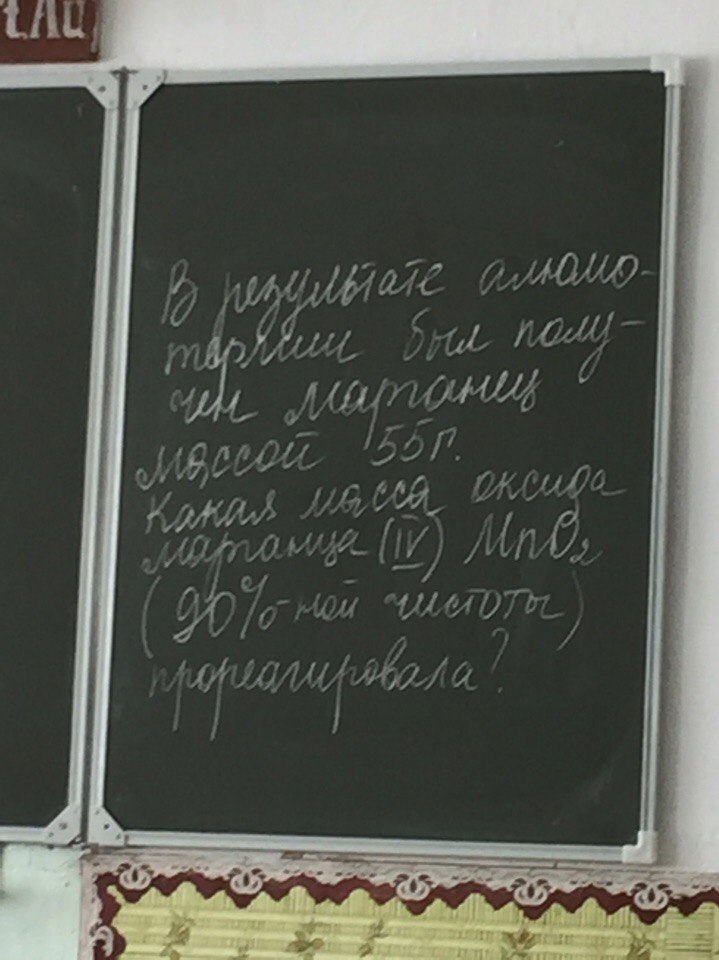 В результате алюмо-
термии был полу-
чен марганец
массой 55г.
Какая масса оксида
марганца (IV) MnO₂
(90%-ной чистоты)
прореагировала?